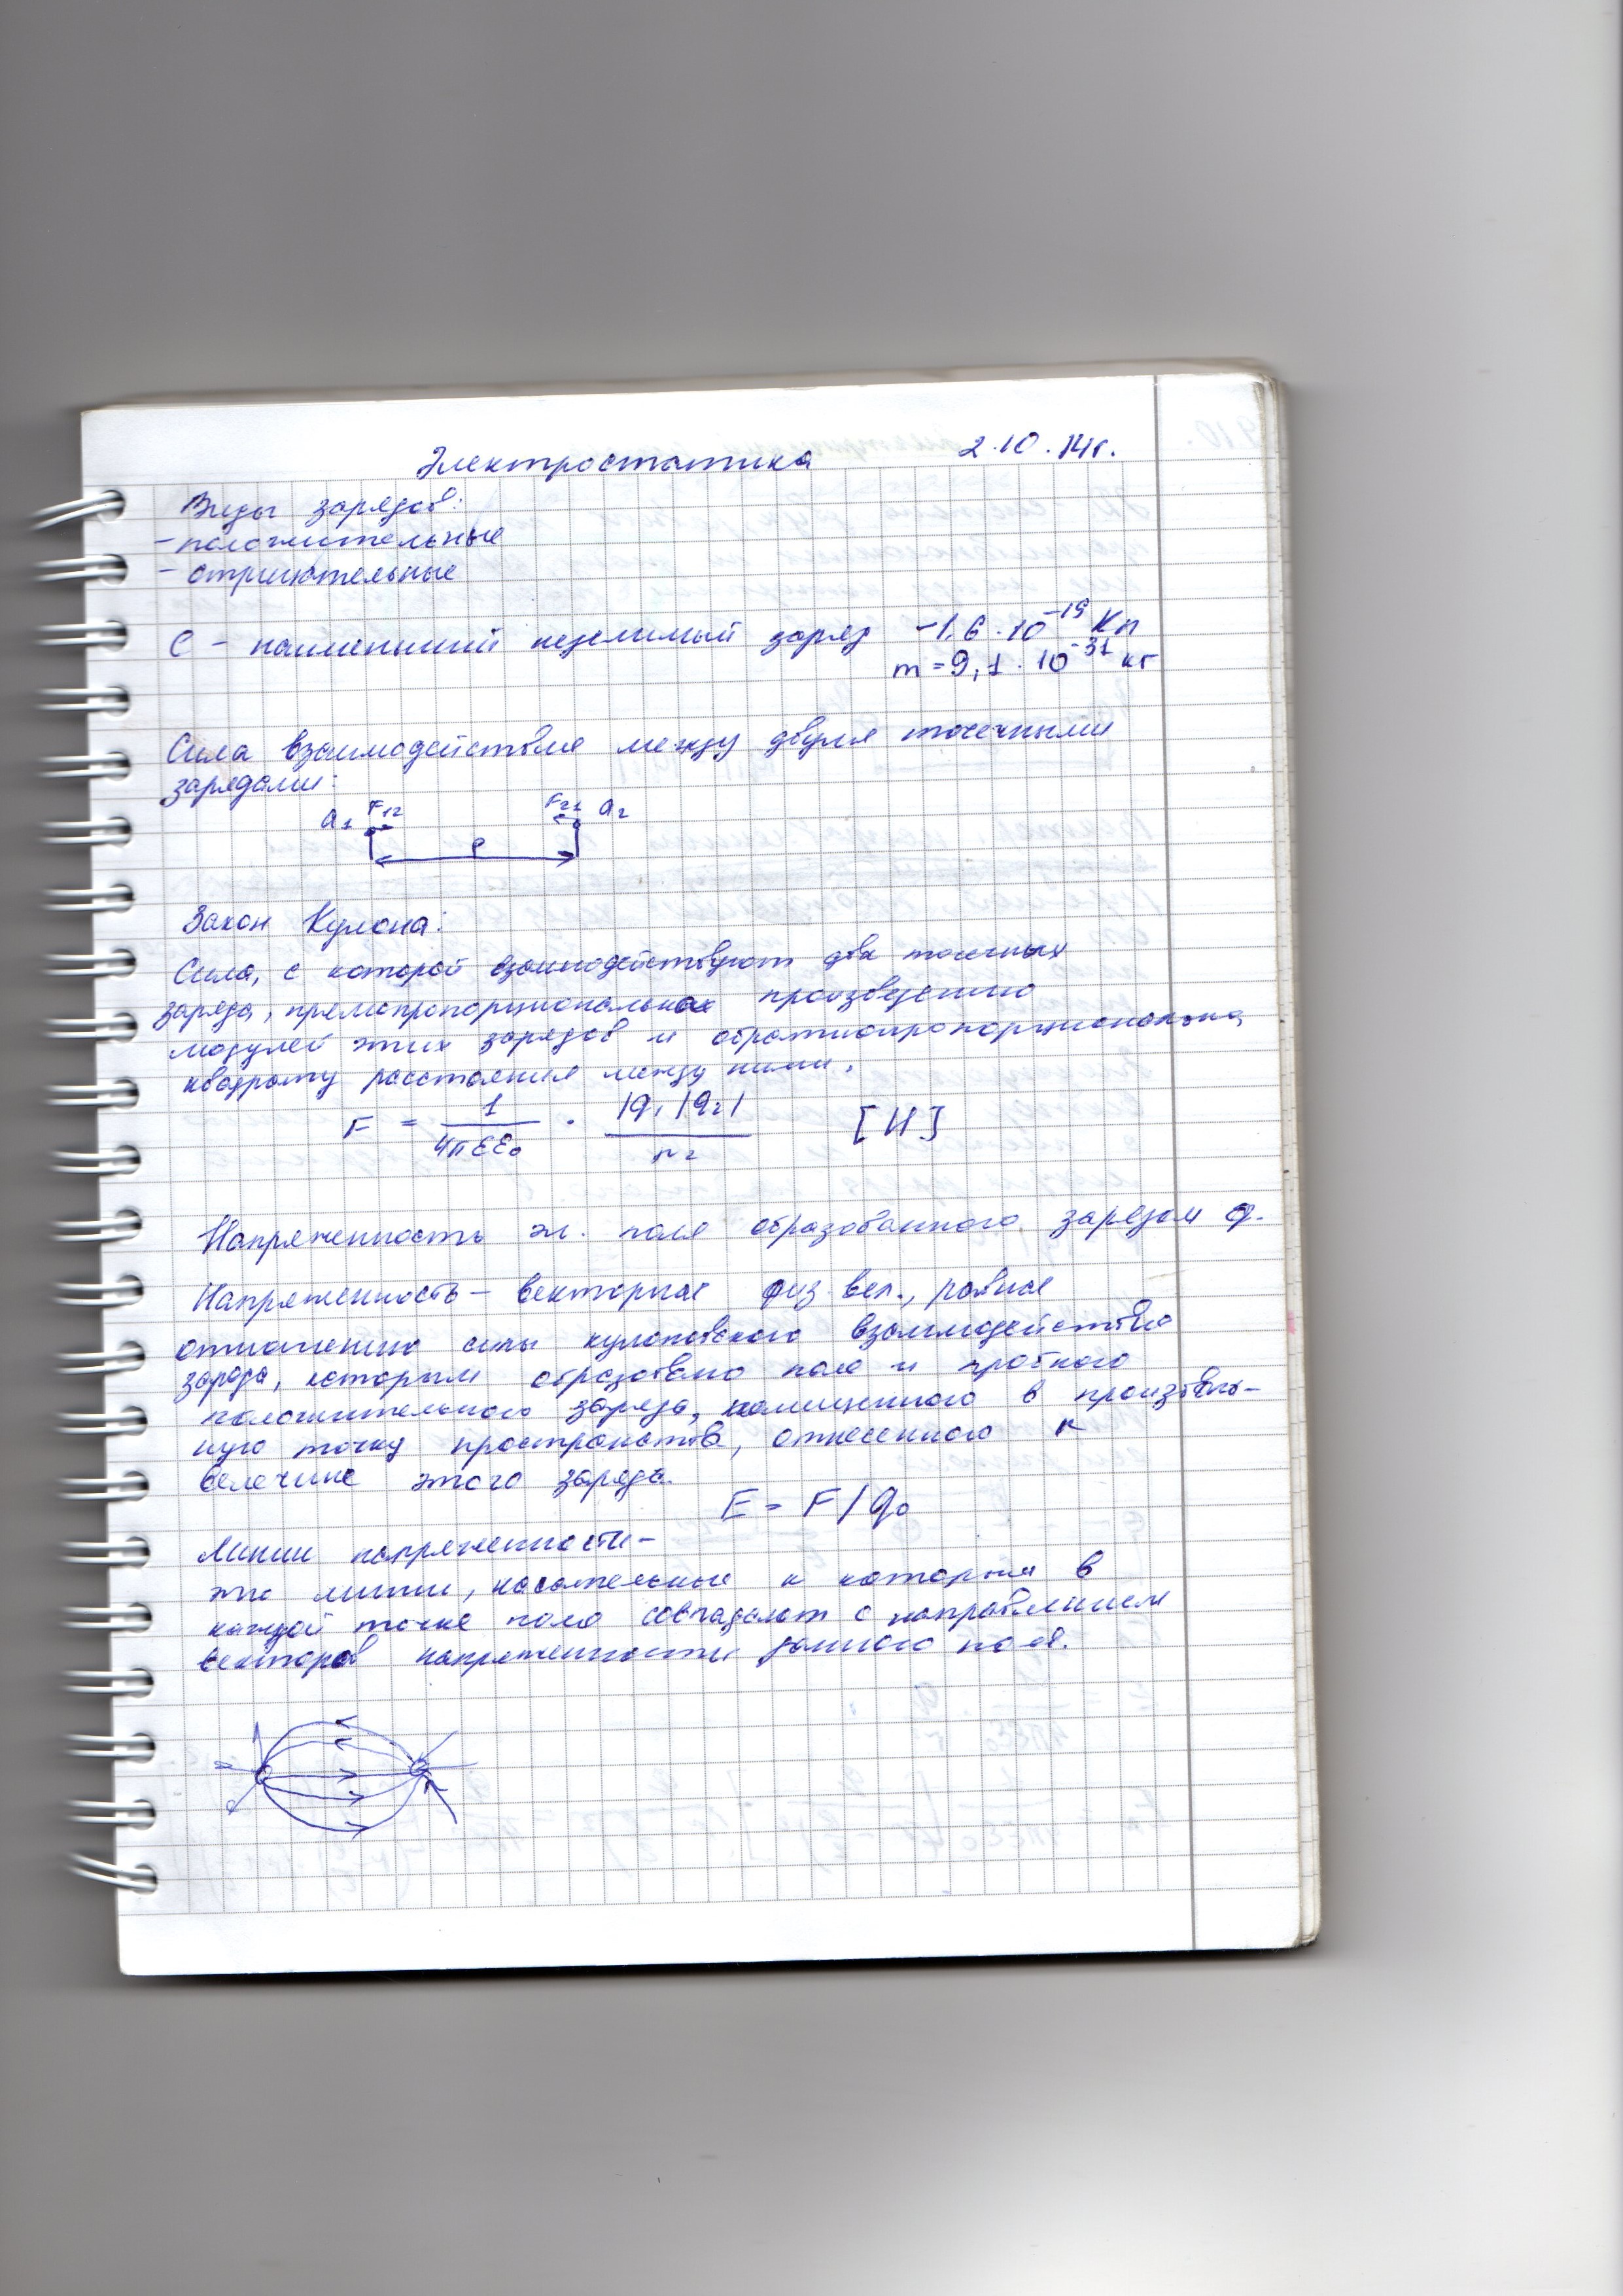 Электростатика 2.10.14г.
Виды зарядов:
- положительные
- отрицательные
e - наименьший неделимый заряд -1,6 · 10⁻¹⁹ Кл
m = 9,1 · 10⁻³¹ кг
Сила взаимодействия между двумя точечными
зарядами:
F₁₂ F₂₁
Закон Кулона:
Сила, с которой взаимодействуют два точечных
заряда, прямопропорциональная произведению
модулей этих зарядов и обратнопропорциональна
квадрату расстояния между ними.
F = 1/4πεε₀ · |q₁|q₂|/r² [Н]
Напряженность эл. поля образованного зарядом q.
Напряженность - векторная физ. вел., равная
отношению силы кулоновского взаимодействия
заряда, которым образовано поле и пробного
положительного заряда, помещенного в произволь-
ную точку пространства, отнесенного к
величине этого заряда.
E = F/q₀
Линии напряженности -
это линии, касательные к которым в
каждой точке поля совпадают с направлением
векторов напряженности данного поля.